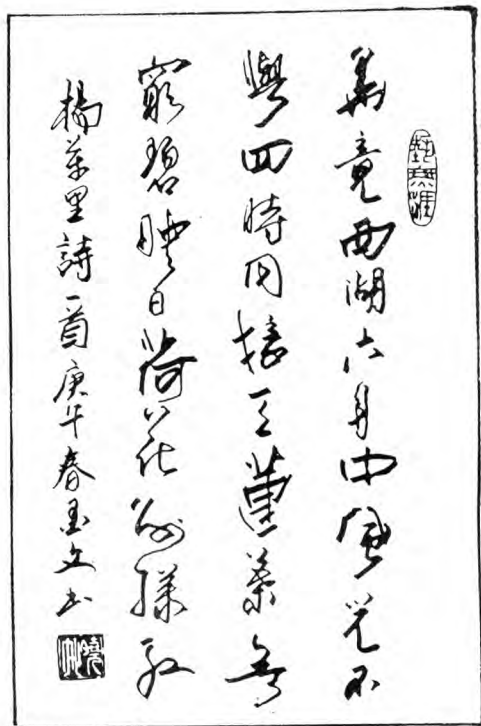 藝無涯
畢竟西湖六月中風光不
與四時同接天蓮葉無
窮碧映日荷花別樣紅
楊萬里詩一首庚午春墨文书